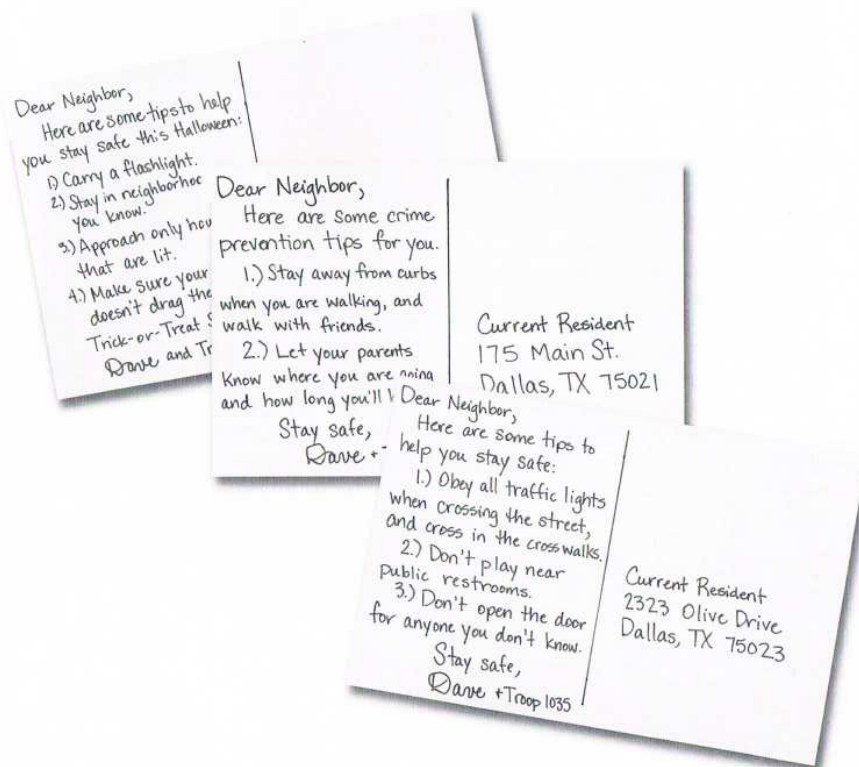 Dear Neighbor,
Here are some tips to help
you stay safe this Halloween:
1) Carry a flashlight.
2.) Stay in
you know.
3.) Approach only
that are lit.
4.) Make sure your
doesn't drag the
Trick-or-Treat
Dave and
Dear Neighbor,
Here are some crime
prevention tips for you.
1.) Stay away from curbs
when you are walking, and
walk with friends.
2.) Let your parents
know where you are going
and how long you'll
Stay safe,
Dave +
Current Resident
175 Main St.
Dallas, TX 75021
Dear Neighbor,
Here are some tips to
help you stay safe:
1.) Obey all traffic lights
when crossing the street,
and cross in the crosswalks.
2.) Don't play near
public restrooms.
3.) Don't open the door
for anyone you don't know.
Stay safe,
Dave + Troop 1035
Current Resident
2323 Olive Drive
Dallas, TX 75023